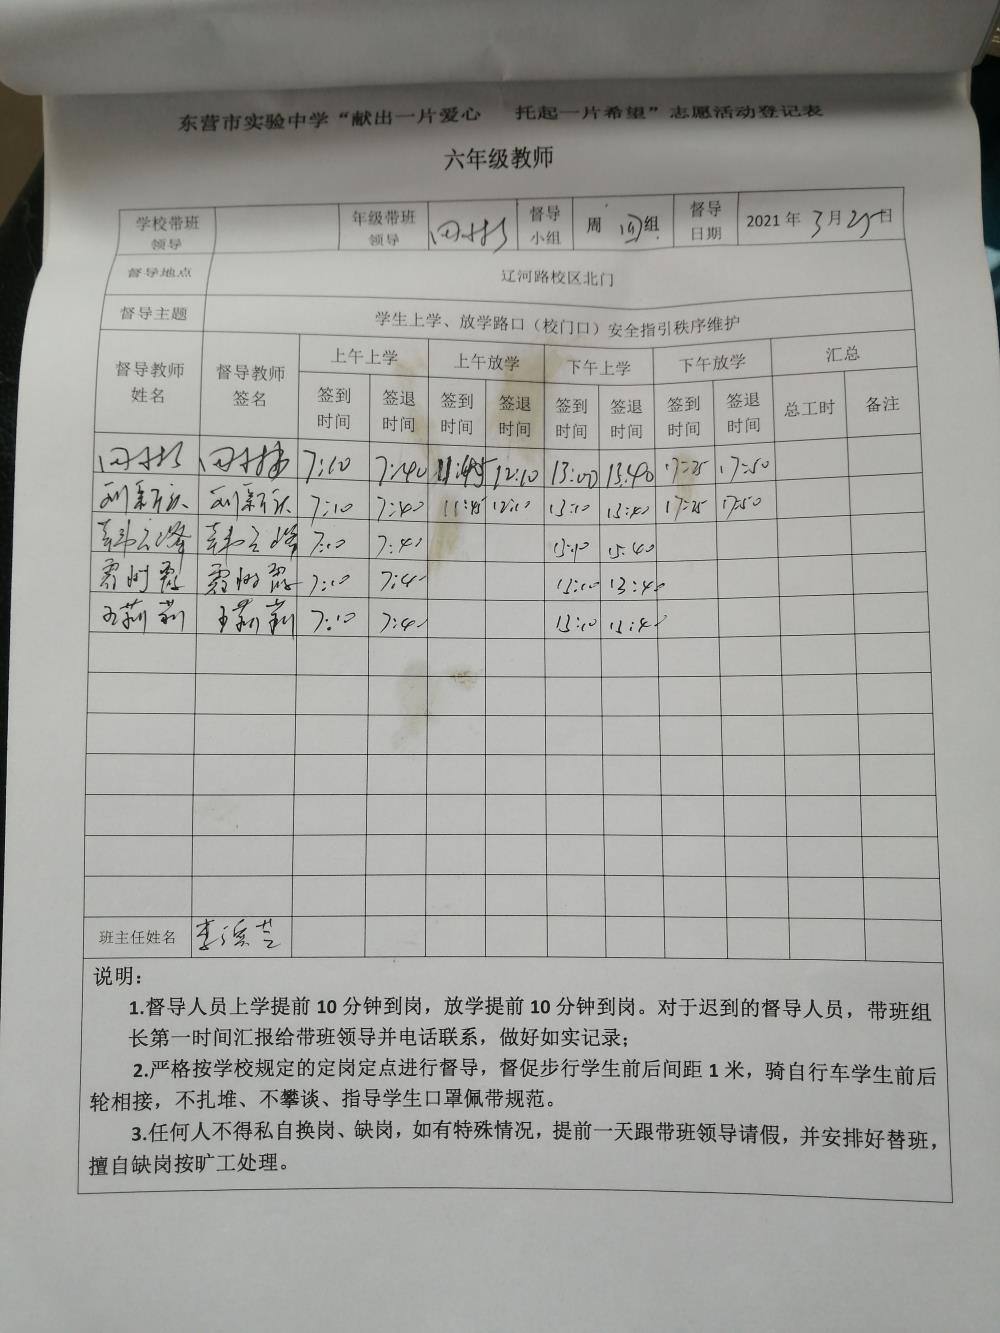 东营市实验中学“献出一片爱心 托起一片希望”志愿活动登记表
六年级教师
学校带班领导 年级带班领导 督导小组 周四组 督导日期 2021年3月25日
督导地点 辽河路校区北门
督导主题 学生上学、放学路口（校门口）安全指引秩序维护
督导教师姓名 督导教师签名 上午上学 上午放学 下午上学 下午放学 汇总
签到时间 签退时间 签到时间 签退时间 签到时间 签退时间 签到时间 签退时间 总工时 备注
7:10 7:40 11:45 12:10 13:00 13:40 17:25 17:50
刘新庆 刘新庆 7:10 7:40 11:45 12:10 13:10 13:40 17:25 17:50
韩云峰 韩云峰 7:10 7:40 13:10 13:40
7:10 7:40 13:10 13:40
王莉莉 王莉莉 7:10 7:40 13:10 13:40
班主任姓名
说明：
1.督导人员上学提前10分钟到岗，放学提前10分钟到岗。对于迟到的督导人员，带班组
长第一时间汇报给带班领导并电话联系，做好如实记录；
2.严格按学校规定的定岗定点进行督导，督促步行学生前后间距1米，骑自行车学生前后
轮相接，不扎堆、不攀谈、指导学生口罩佩带规范。
3.任何人不得私自换岗、缺岗，如有特殊情况，提前一天跟带班领导请假，并安排好替班，
擅自缺岗按旷工处理。